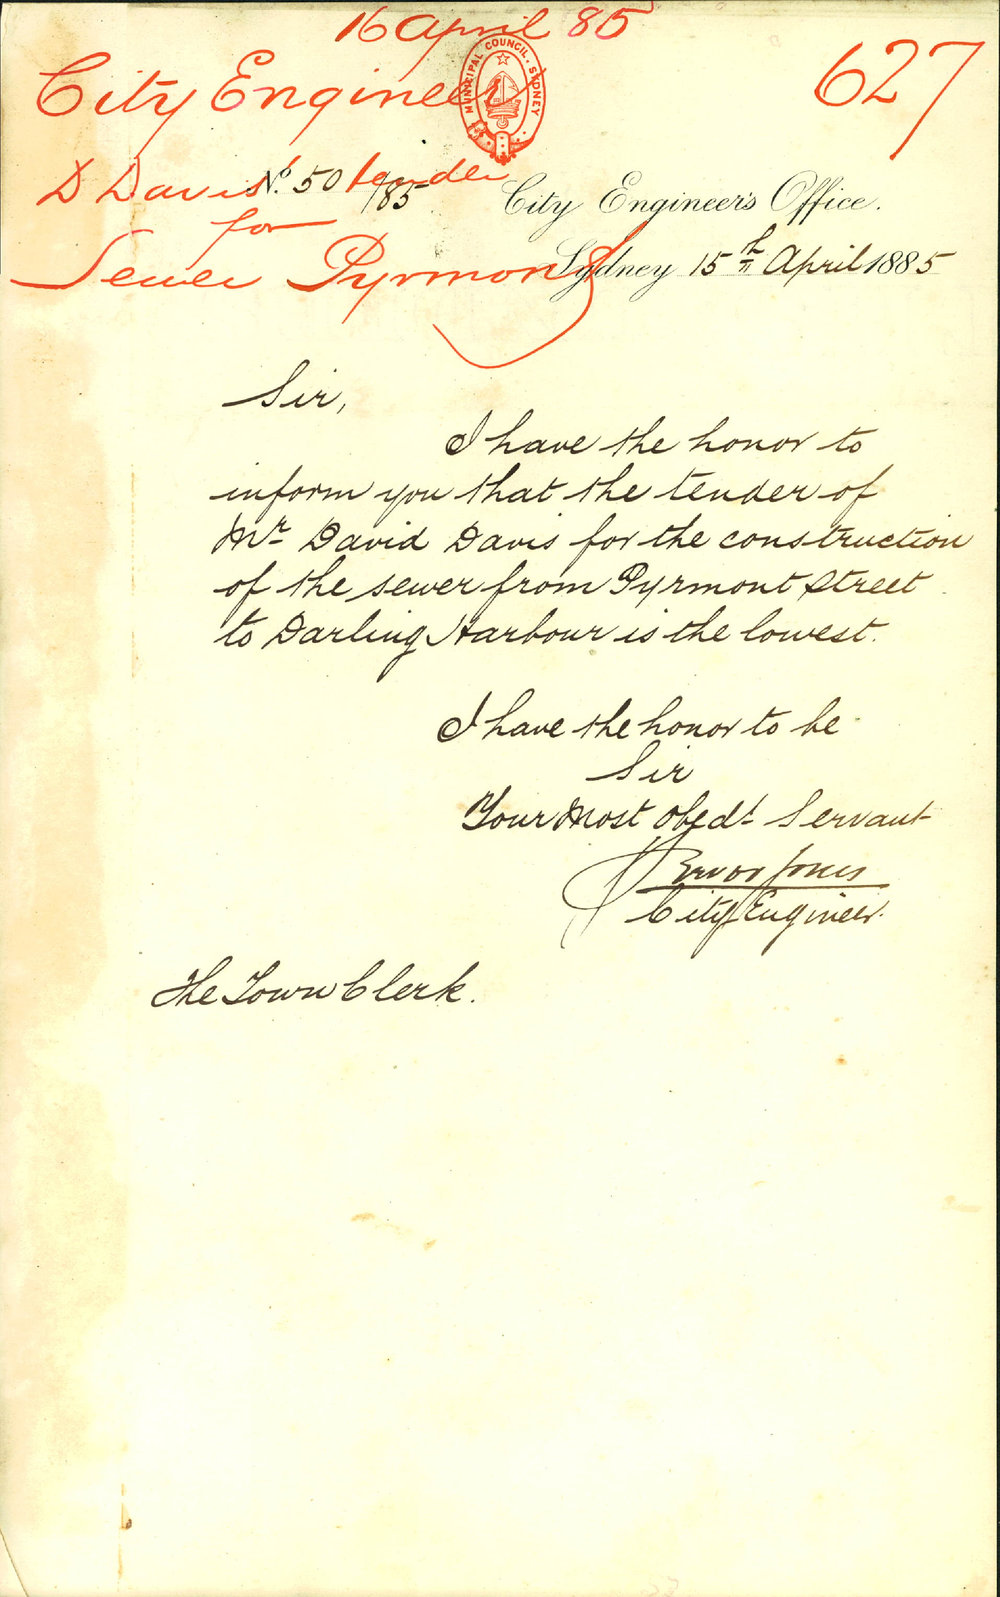 16 April 85
627
City Engineer
MUNICIPAL COUNCIL. SYDNEY
D Davis tender
No. 50/85
for
Sewer Pyrmont
City Engineer's Office.
Sydney 15th April 1885
Sir,
I have the honor to
inform you that the tender of
Mr David Davis for the construction
of the sewer from Pyrmont Street
to Darling Harbour is the lowest.
I have the honor to be
Sir
Your Most Obedt Servant
Trevor Jones
City Engineer.
The Town Clerk.